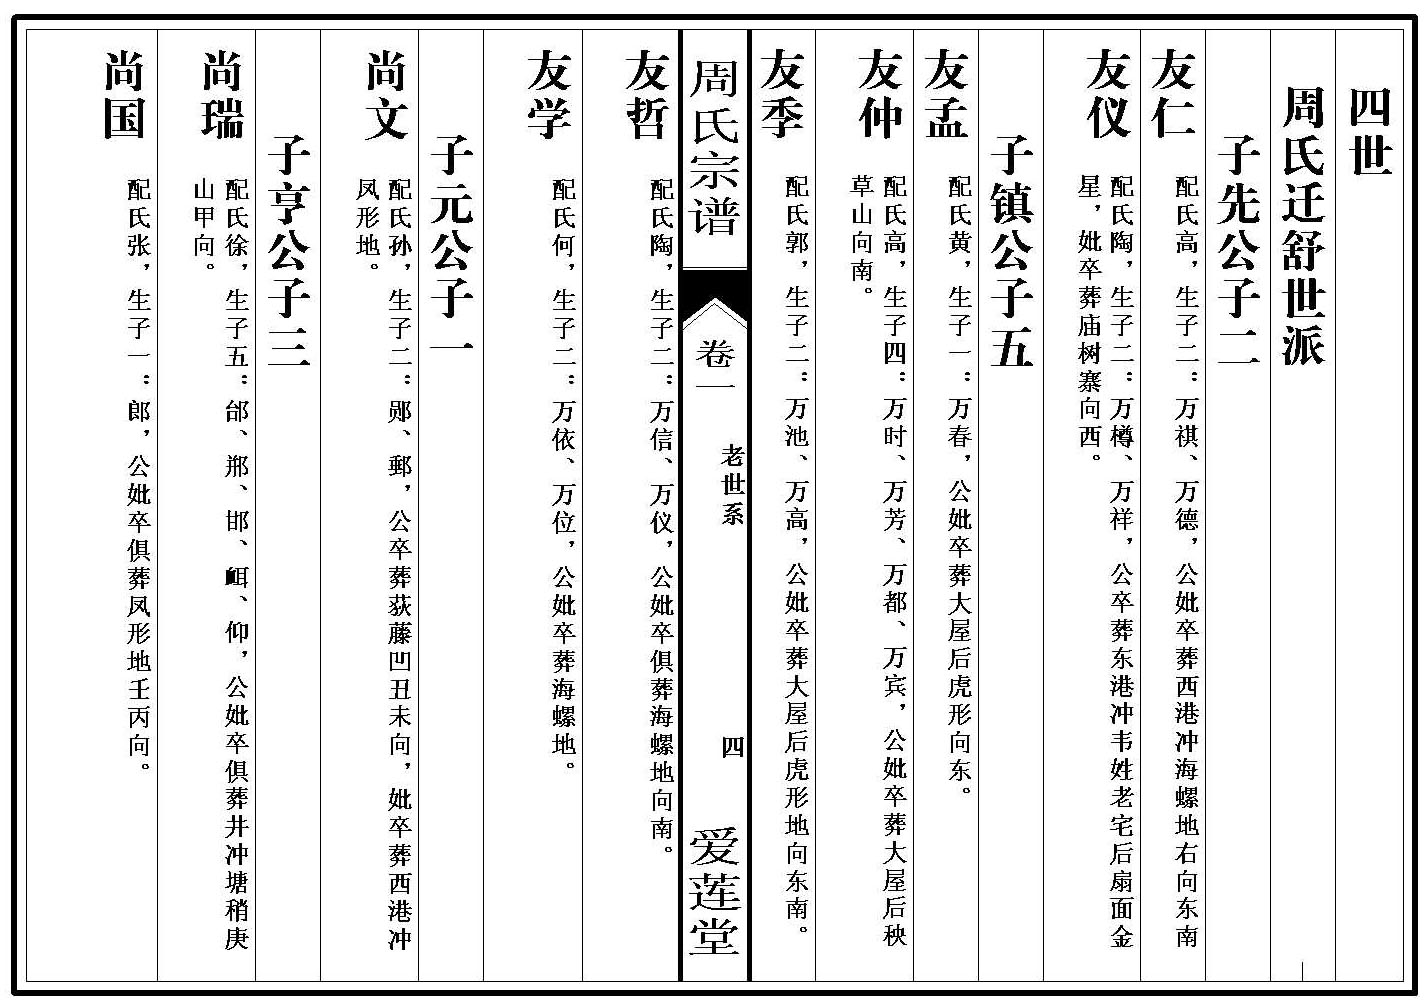 四世
周氏迁舒世派
子先公子二
友仁
配氏高，生子二：万祺、万德，公妣卒葬西港冲海螺地右向东南
友仪
配氏陶，生子二：万樽、万祥，公卒葬东港冲韦姓老宅后扇面金
星，妣卒葬庙树寨向西。
子镇公子五
友孟
配氏黄，生子一：万春，公妣卒葬大屋后虎形向东。
友仲
配氏高，生子四：万时、万芳、万都、万宾，公妣卒葬大屋后秧
草山向南。
友季
配氏郭，生子二：万池、万高，公妣卒葬大屋后虎形地向东南。
周氏宗谱
卷一
老世系
四
爱莲堂
友哲
配氏陶，生子二：万信、万仪，公妣卒俱葬海螺地向南。
友学
配氏何，生子二：万依、万位，公妣卒葬海螺地。
子元公子一
尚文
配氏孙，生子二：郧、郵，公卒葬荻藤凹丑未向，妣卒葬西港冲
凤形地。
子亨公子三
尚瑞
配氏徐，生子五：邰、邢、邯、衈、仰，公妣卒俱葬井冲塘稍庚
山甲向。
尚国
配氏张，生子一：郎，公妣卒俱葬凤形地壬丙向。